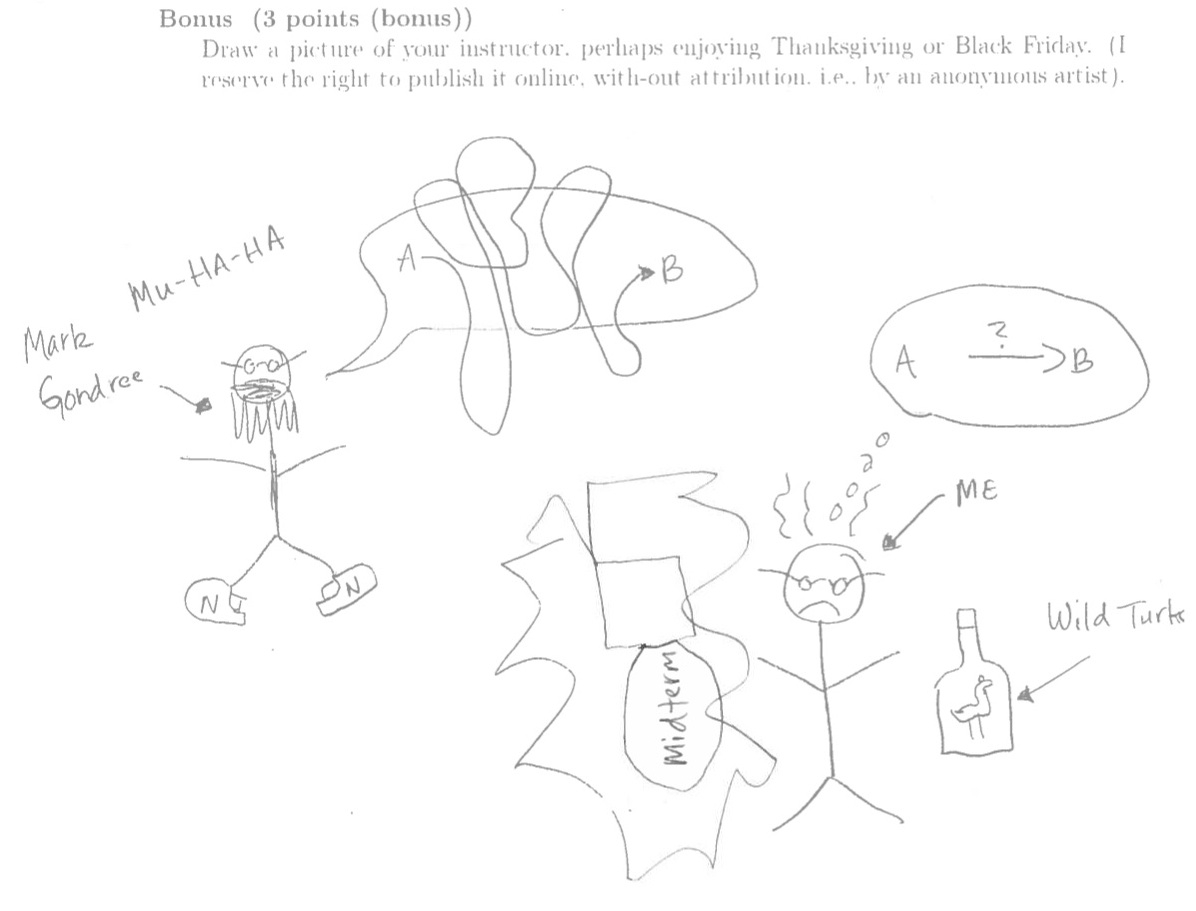 Bonus (3 points (bonus))
Draw a picture of your instructor, perhaps enjoying Thanksgiving or Black Friday. (I
reserve the right to publish it online, with-out attribution, i.e., by an anonymous artist).
Mu-HA-HA
A B
Mark
Gondree
A ? B
ME
N N
Midterm
Wild Turk